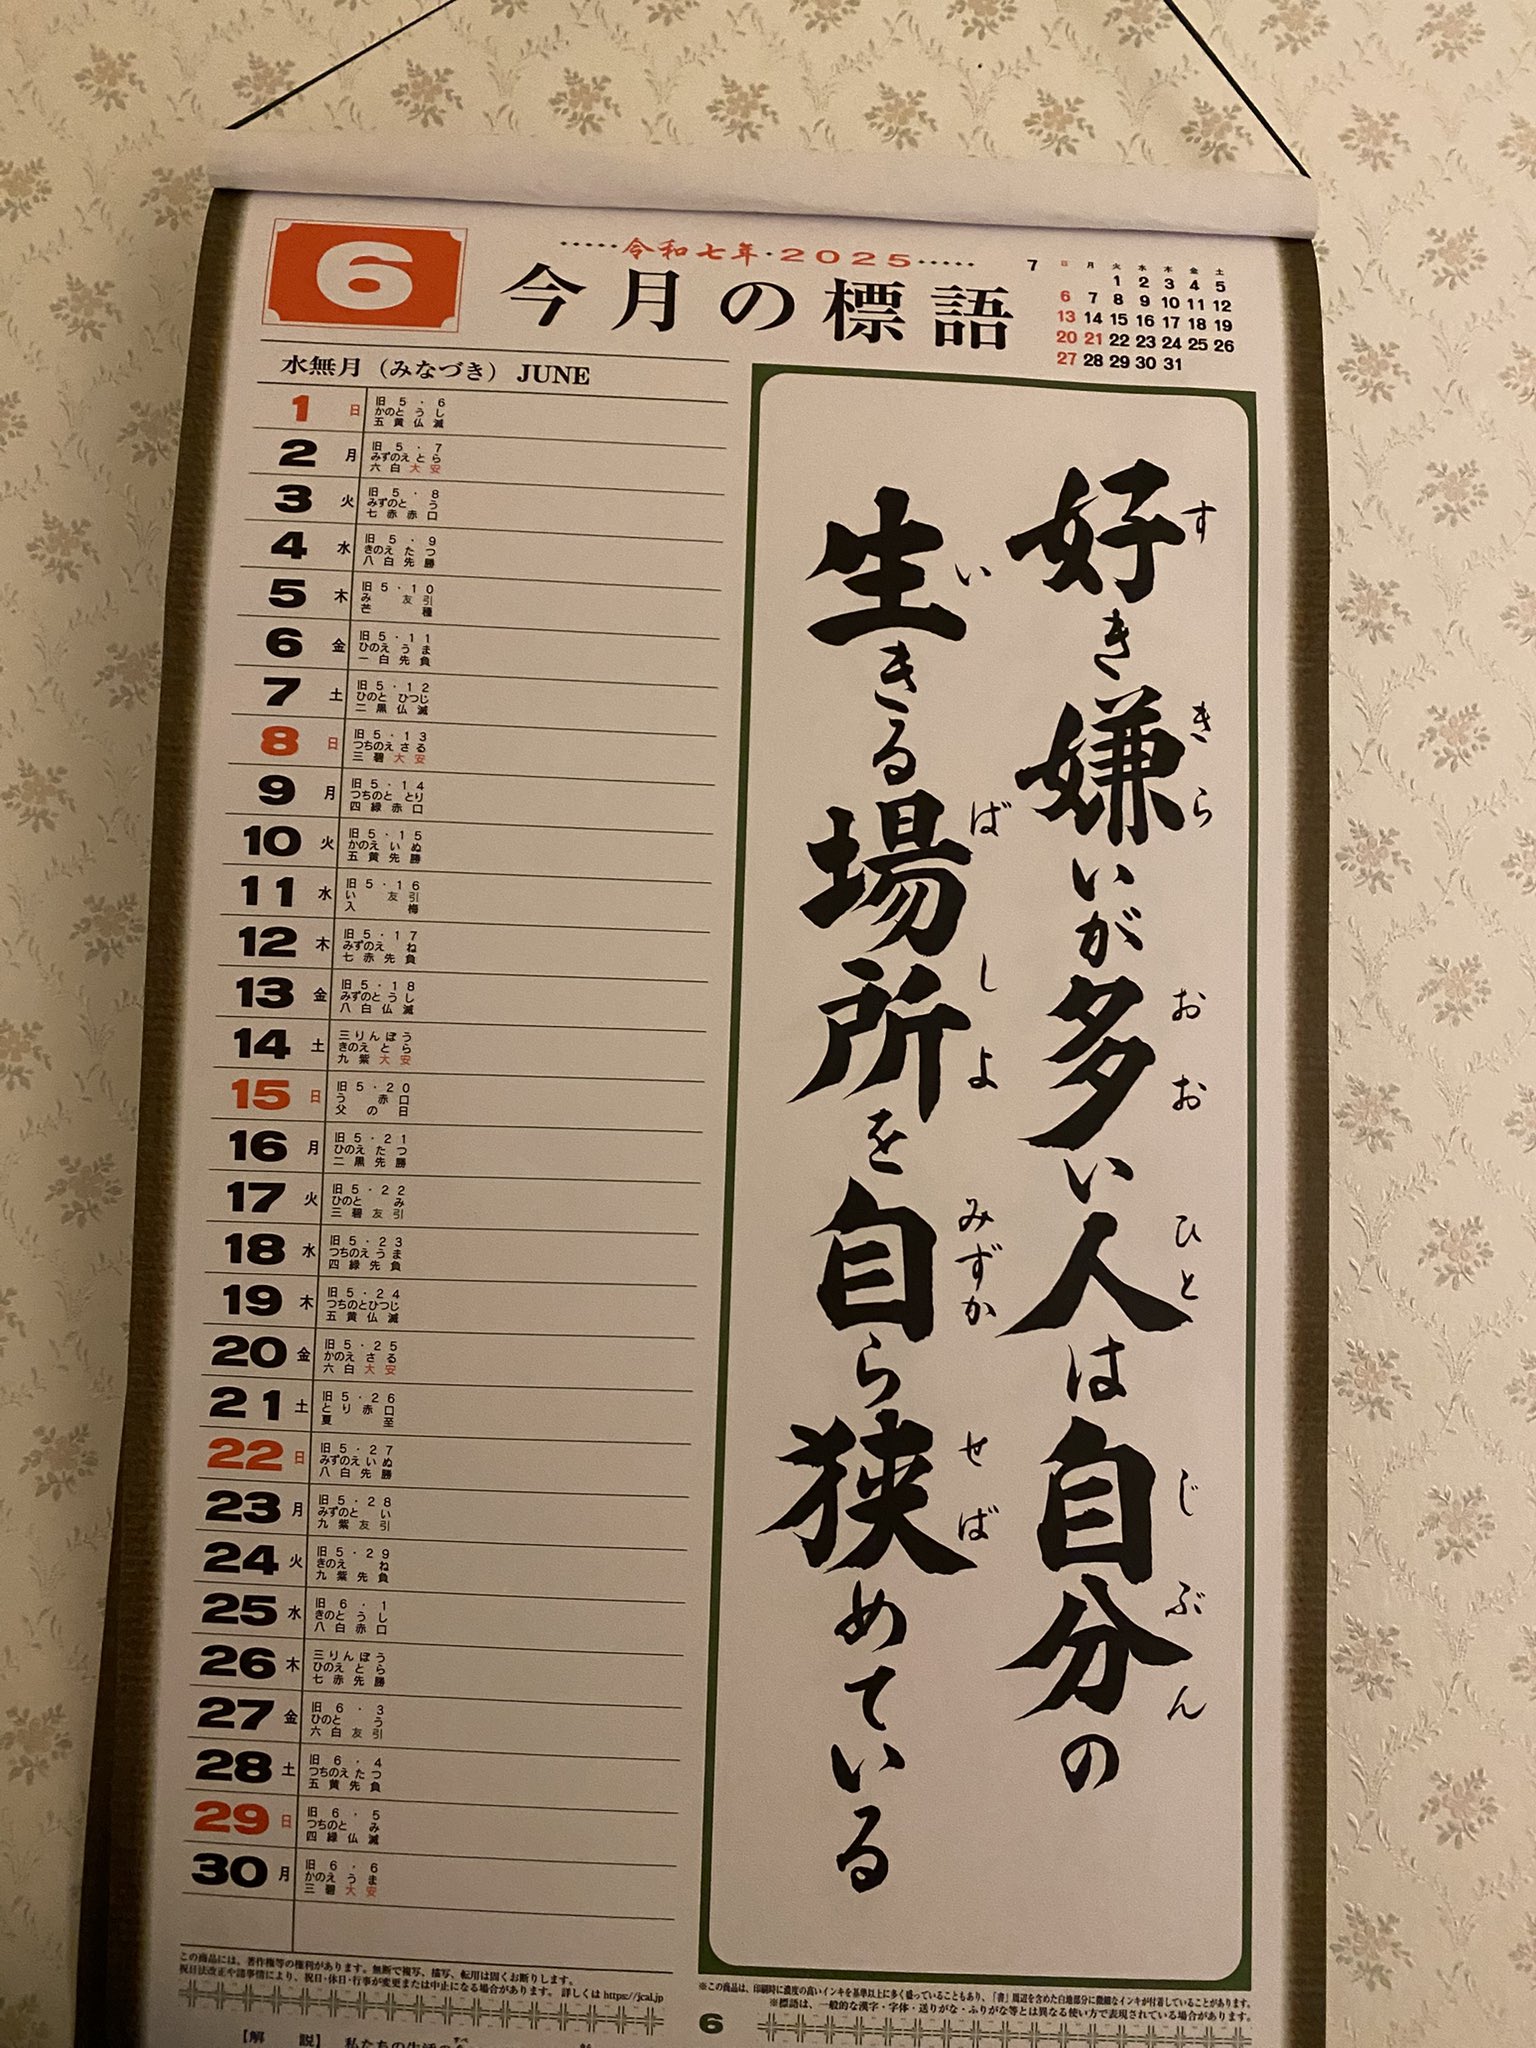 6
令和七年・2025
今月の標語
7
日 月 火 水 木 金 土
1 2 3 4 5
6 7 8 9 10 11 12
13 14 15 16 17 18 19
20 21 22 23 24 25 26
27 28 29 30 31
水無月（みなづき） JUNE
1 日 旧5・6
かのと うし
五黄仏滅
2 月 旧5・7
みずのえ とら
六白大安
3 火 旧5・8
みずのと う
七赤赤口
4 水 旧5・9
きのえ たつ
八白先勝
5 木 旧5・10
み 友引
芒種
6 金 旧5・11
ひのえ うま
一白先負
7 土 旧5・12
ひのと ひつじ
二黒仏滅
8 日 旧5・13
つちのえ さる
三碧大安
9 月 旧5・14
つちのと とり
四緑赤口
10 火 旧5・15
かのえ いぬ
五黄先勝
11 水 旧5・16
い 友引
入梅
12 木 旧5・17
みずのえ ね
七赤先負
13 金 旧5・18
みずのと うし
八白仏滅
14 土 三りんぼう
きのえ とら
九紫大安
15 日 旧5・20
う 赤口
父の日
16 月 旧5・21
ひのえ たつ
二黒先勝
17 火 旧5・22
ひのと み
三碧友引
18 水 旧5・23
つちのえ うま
四緑先負
19 木 旧5・24
つちのとひつじ
五黄仏滅
20 金 旧5・25
かのえ さる
六白大安
21 土 旧5・26
とり 赤口
夏至
22 日 旧5・27
みずのえ いぬ
八白先勝
23 月 旧5・28
みずのと い
九紫友引
24 火 旧5・29
きのえ ね
九紫先負
25 水 旧6・1
きのと うし
八白赤口
26 木 三りんぼう
ひのえ とら
七赤先勝
27 金 旧6・3
ひのと う
六白友引
28 土 旧6・4
つちのえ たつ
五黄先負
29 日 旧6・5
つちのと み
四緑仏滅
30 月 旧6・6
かのえ うま
三碧大安
好き嫌いが多い人は自分の
す きら おお ひと じぶん
生きる場所を自ら狭めている
い ばしょ みずか せば
この商品には、著作権等の権利があります。無断で複写、描写、転用は固くお断りします。
祝日法改正や諸事情により、祝日・休日・行事が変更または中止になる場合があります。 詳しくは https://jcal.jp
※この商品は、印刷時に濃度の高いインキを基準以上に多く盛っていることもあり、「書」周辺を含めた白地部分に微細なインキが付着していることがあります。
※標語は、一般的な漢字・字体・送りがな・ふりがな等とは異なる使い方で表現されている場合があります。
6
【解 説】 私たちの生活の